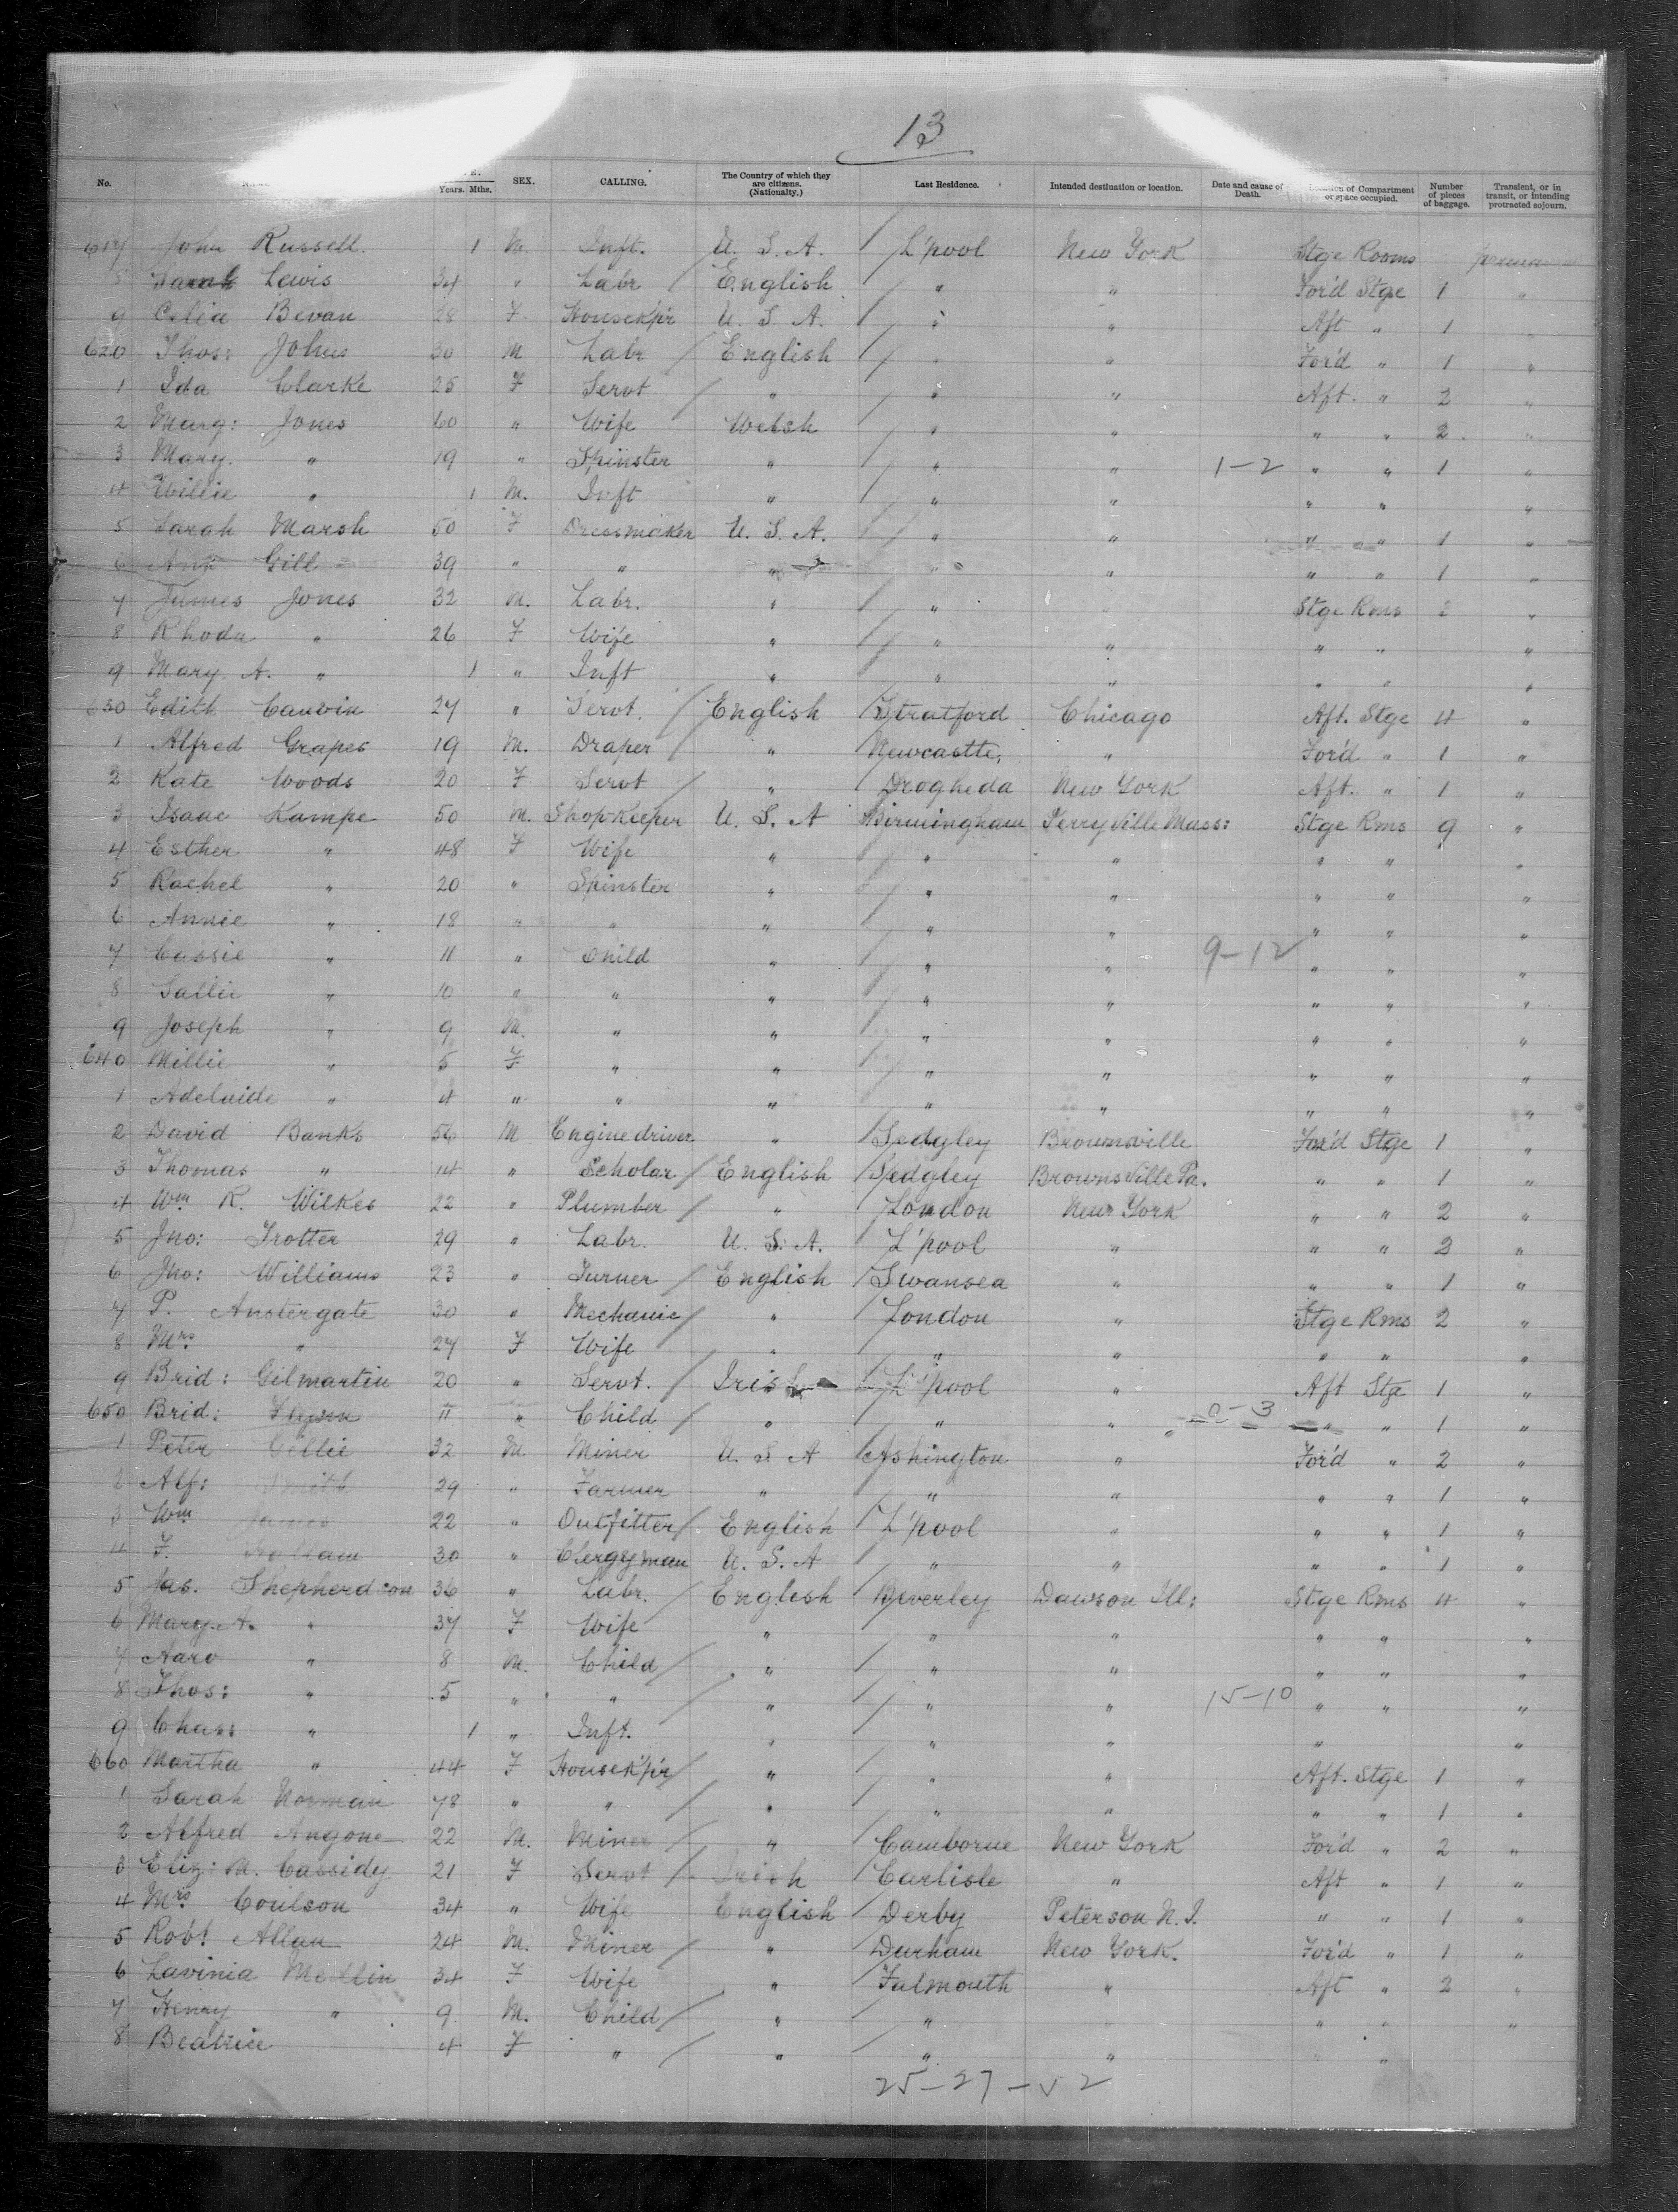 13
No. NAME Years. Mths. SEX. CALLING. The Country of which they are citizens. (Nationalty.) Last Residence. Intended destination or location. Date and cause of Death. Location of Compartment or space occupied. Number of pieces of baggage. Transient, or in transit, or intending protracted sojourn.
617 John Russell. 1 M. Inft. U. S. A. L'pool New York Stge Rooms
8 Lewis 34 " Labr English " " For'd Stge 1 "
9 Celia Bevan 28 F Housek'p'r U. S. A. " " Aft " 1 "
620 Thos: Johns 30 M Labr English " " For'd " 1 "
1 Ida Clarke 25 F Servt " " " Aft. " 2 "
2 Marg: Jones 60 " Wife Welsh " " " " 2 "
3 Mary. " 19 " Spinster " " " 1-2 " " 1 "
4 Willie " 1 M. Inft " " " " " "
5 Sarah Marsh 50 F Dressmaker U. S. A. " " " " 1 "
6 Ann Gill 39 " " " " " " " 1 "
7 James Jones 32 M. Labr. " " " Stge Rms 2 "
8 Rhoda " 26 F Wife " " " " " "
9 Mary A. " 1 " Inft " " " " " "
630 Edith Cauvin 27 " Servt. English Stratford Chicago Aft. Stge 4 "
1 Alfred Grapes 19 M. Draper " Newcastle, " For'd " 1 "
2 Kate Woods 20 F Servt " Drogheda New York Aft. " 1 "
3 Isaac Kampe 50 M. Shop-Keeper U. S. A Birmingham Perryville Mass: Stge Rms 9 "
4 Esther " 48 F Wife " " " " " "
5 Rachel " 20 " Spinster " " " " " "
6 Annie " 18 " " " " " " " "
7 Cassie " 11 " Child " " " 9-12 " " "
8 Sallie " 10 " " " " " " " "
9 Joseph " 9 M. " " " " " " "
640 Millie " 5 F " " " " " " "
1 Adelaide " 4 " " " " " " " "
2 David Banks 56 M Enginedriver " Sedgley Brownsville For'd Stge 1 "
3 Thomas " 14 " Scholar English Sedgley Brownsville Pa. " " 1 "
4 Wm R. Wilkes 22 " Plumber " London New York " " 2 "
5 Jno: Trotter 29 " Labr. U. S. A. L'pool " " " 2 "
6 Jno: Williams 23 " Turner English Swansea " " " 1 "
7 P. Anstergate 30 " Mechanic " London " Stge Rms 2 "
8 Mrs " 27 F Wife " " " " " "
9 Brid: Gilmartin 20 " Servt. Irish L'pool " Aft Stge 1 "
650 Brid: 11 " Child " " " 0-3 " " 1 "
1 Peter Gillie 32 M Miner U. S A Ashington " For'd " 2 "
2 Alf: Smith 29 " Farmer " " " " " 1 "
3 Wm James 22 " Outfitter English L'pool " " " 1 "
4 F. Hallam 30 " Clergyman U. S. A " " " " 1 "
5 Jas. Shepherdson 36 " Labr. English Beverley Dawson Ill: Stge Rms 4 "
6 Mary. A. " 37 F Wife " " " " " "
7 Aaro " 8 M. Child " " " " " "
8 Thos: " 5 " " " " " 15-10 " " "
9 Chas: " 1 " Inft. " " " " "
660 Martha " 44 F Housek'p'r " " " Aft. Stge 1 "
1 Sarah Norman 78 " " " " " " " 1 "
2 Alfred Angone 22 M. Miner " Camborne New York For'd " 2 "
3 Eliz: M. Cassidy 21 F Servt Irish Carlisle " Aft " 1 "
4 Mrs Coulson 34 " Wife English Derby Peterson N. J. " " 1 "
5 Robt Allan 24 M. Miner " Durham New York. For'd " 1 "
6 Lavinia Medlin 34 F Wife " Falmouth " Aft " 2 "
7 Henry " 9 M. Child " " " " "
8 Beatrice 4 F " " " " "
25-27-52